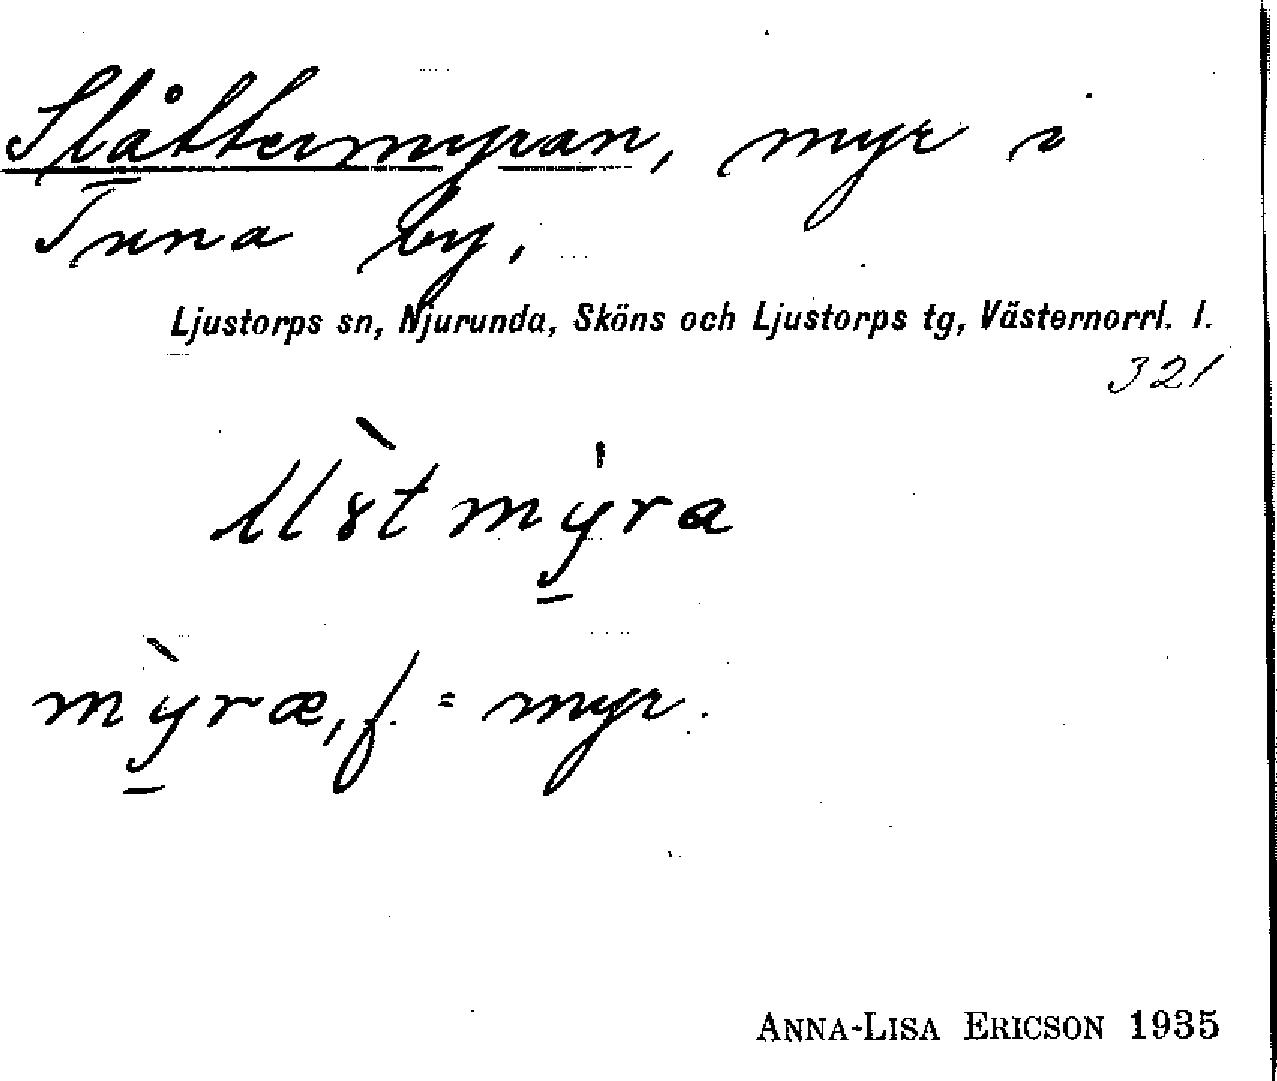 Slåttermyran, myr i
Tuna by.
Ljustorps sn, Njurunda, Sköns och Ljustorps tg, Västernorrl. l.
321
mỳ̱ræ, f. = myr.
ANNA-LISA ERICSON 1935